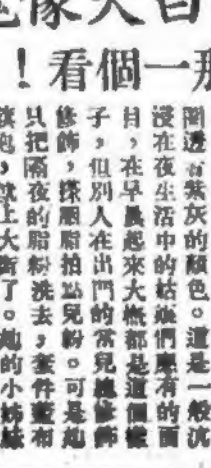 那一個看！
圈邊有紫灰的顏色。這是一般沈
浸在夜生活中的姑娘們應有的面
目，在早晨起來大概都是這個樣
子，但別人在出門的當兒總修飾
修飾，搽胭脂拍點兒粉。可是她
只把隔夜的脂粉洗去，套件藍布
旗袍，就上大街了。她的小姊妹